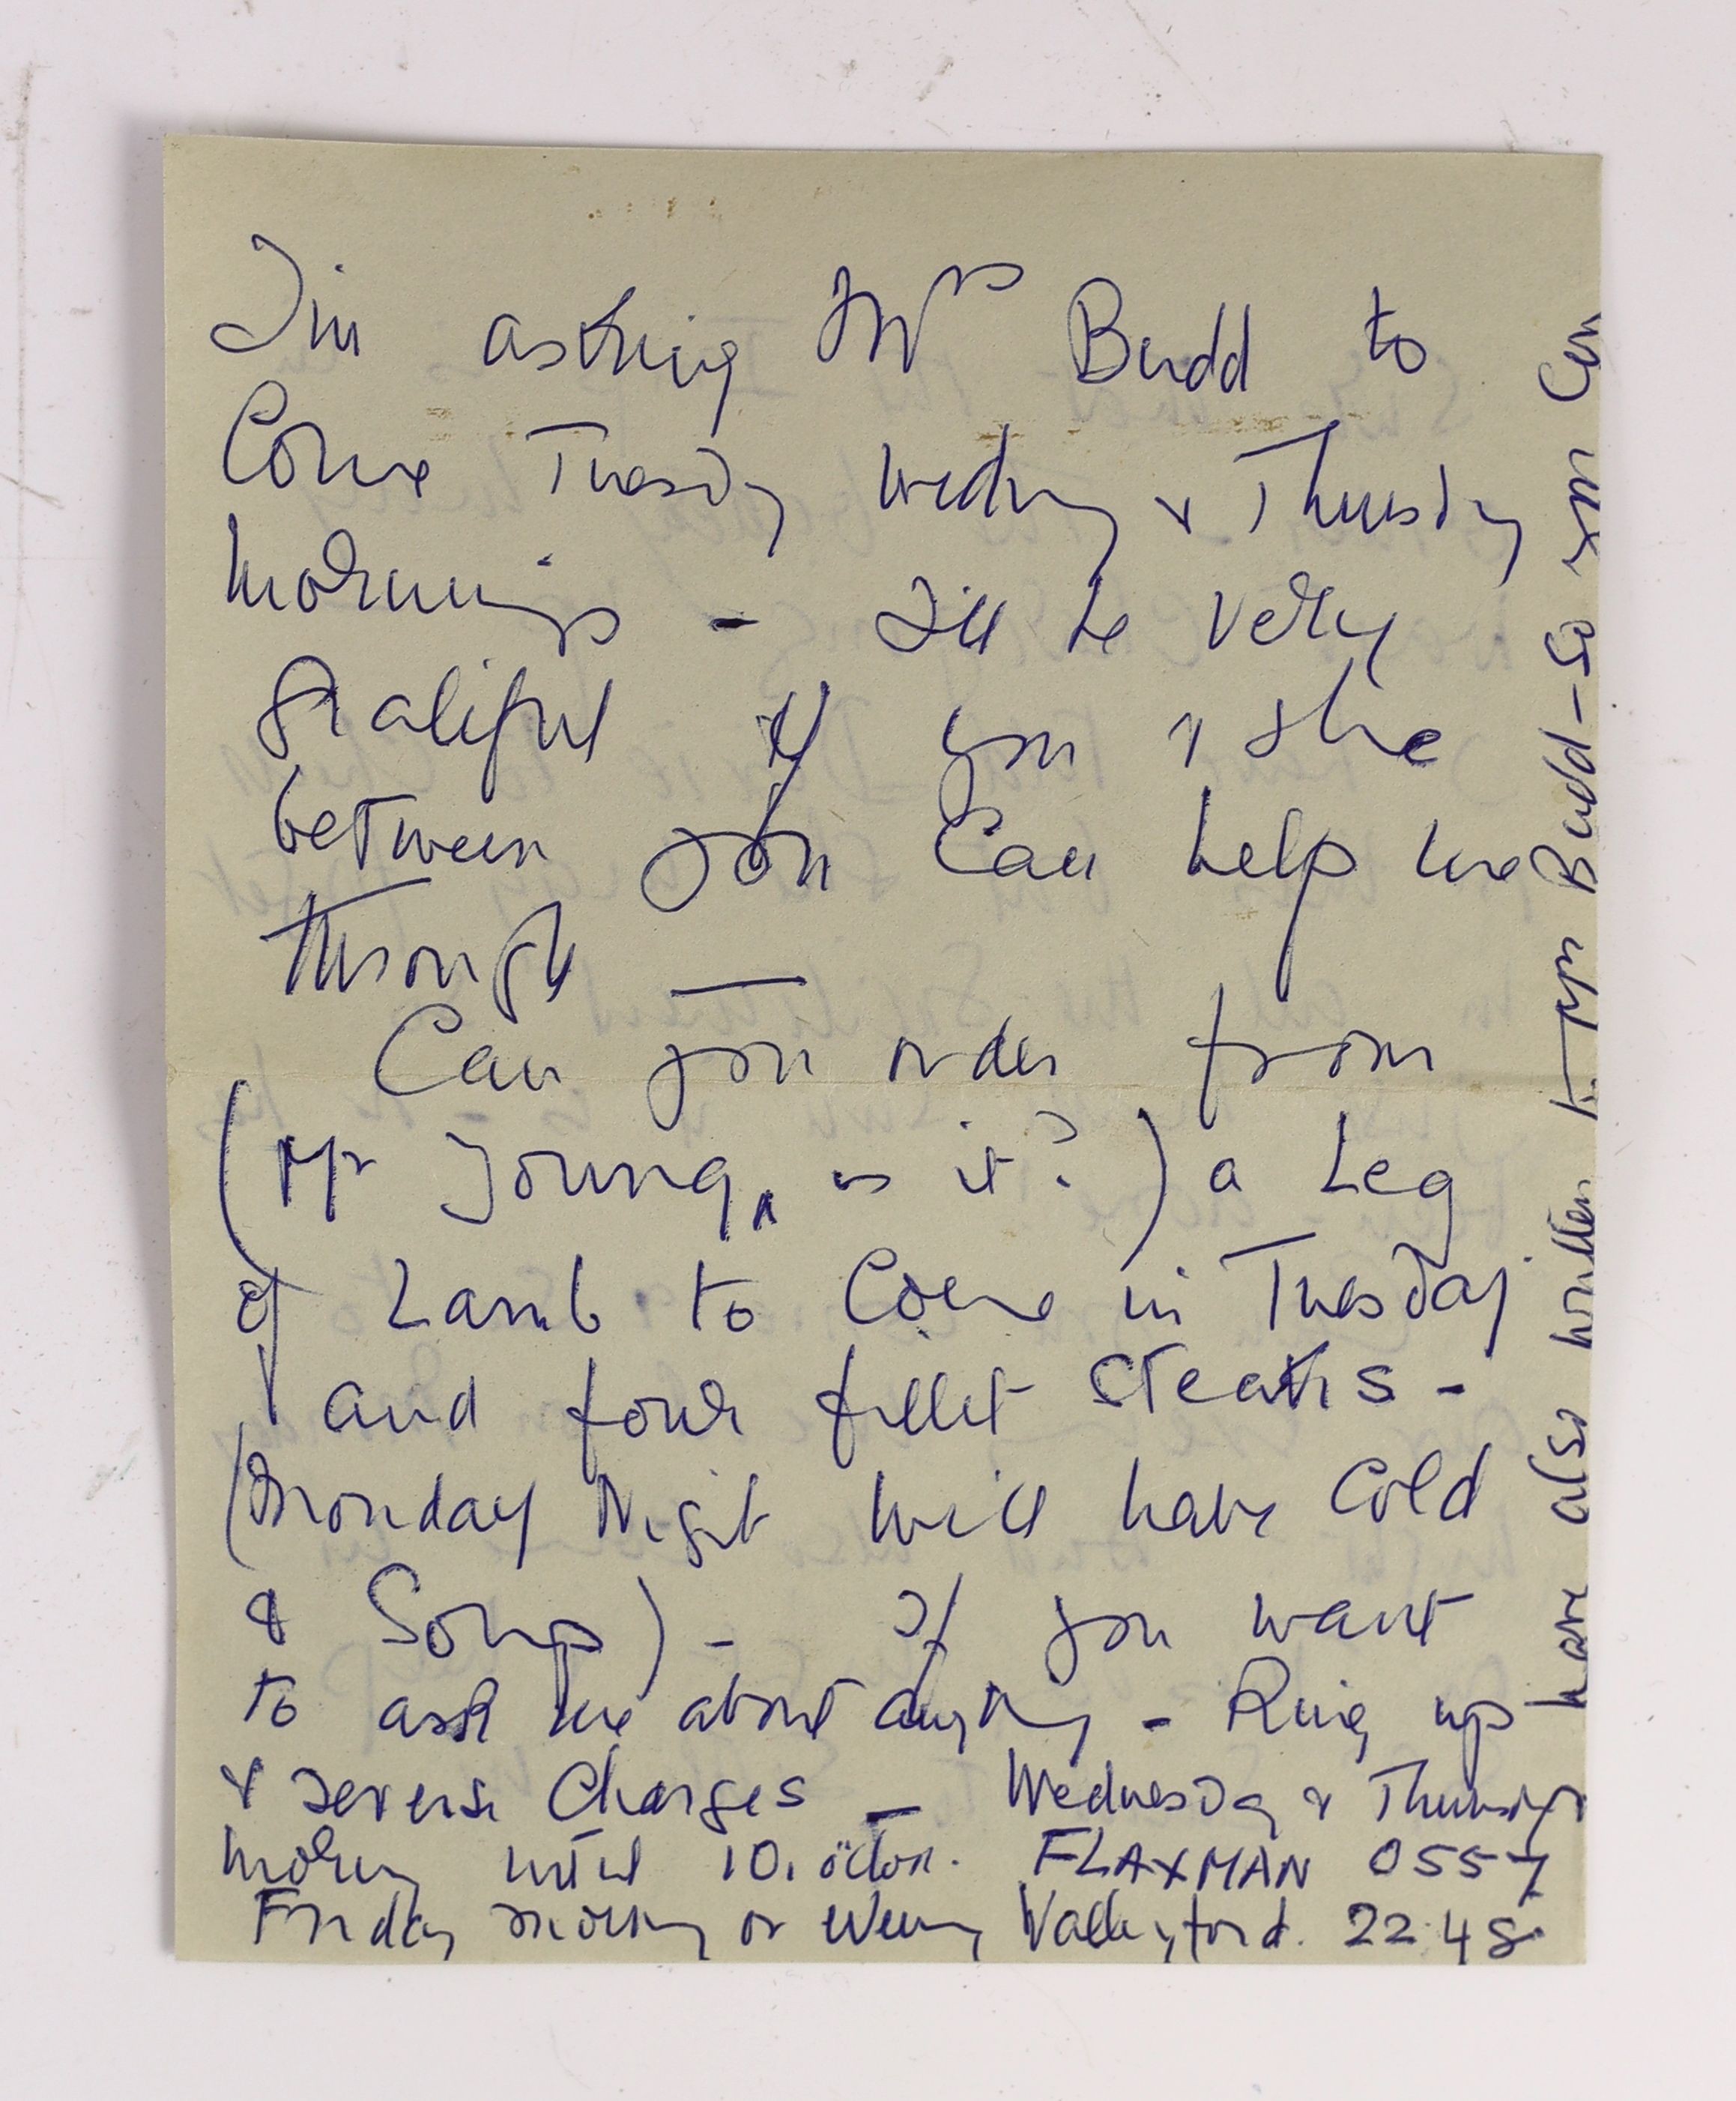 I'm asking Mrs Budd to
Come Tuesday Wedny & Thursday
Mornings - I'll be very
grateful if you & she
between you can help me
through —
Can you order from
(Mr Young, is it?) a Leg
of Lamb to Come in Tuesday
& and four fillet steaks -
(Monday Night will have Cold
& Soup) - If you want
to ask me about anything - Ring up
& reverse Charges — Wednesday & Thursday
morning until 10. FLAXMAN 0557
Friday morning or evening Wallingford. 2248
have also written to Mrs Budd - so you can